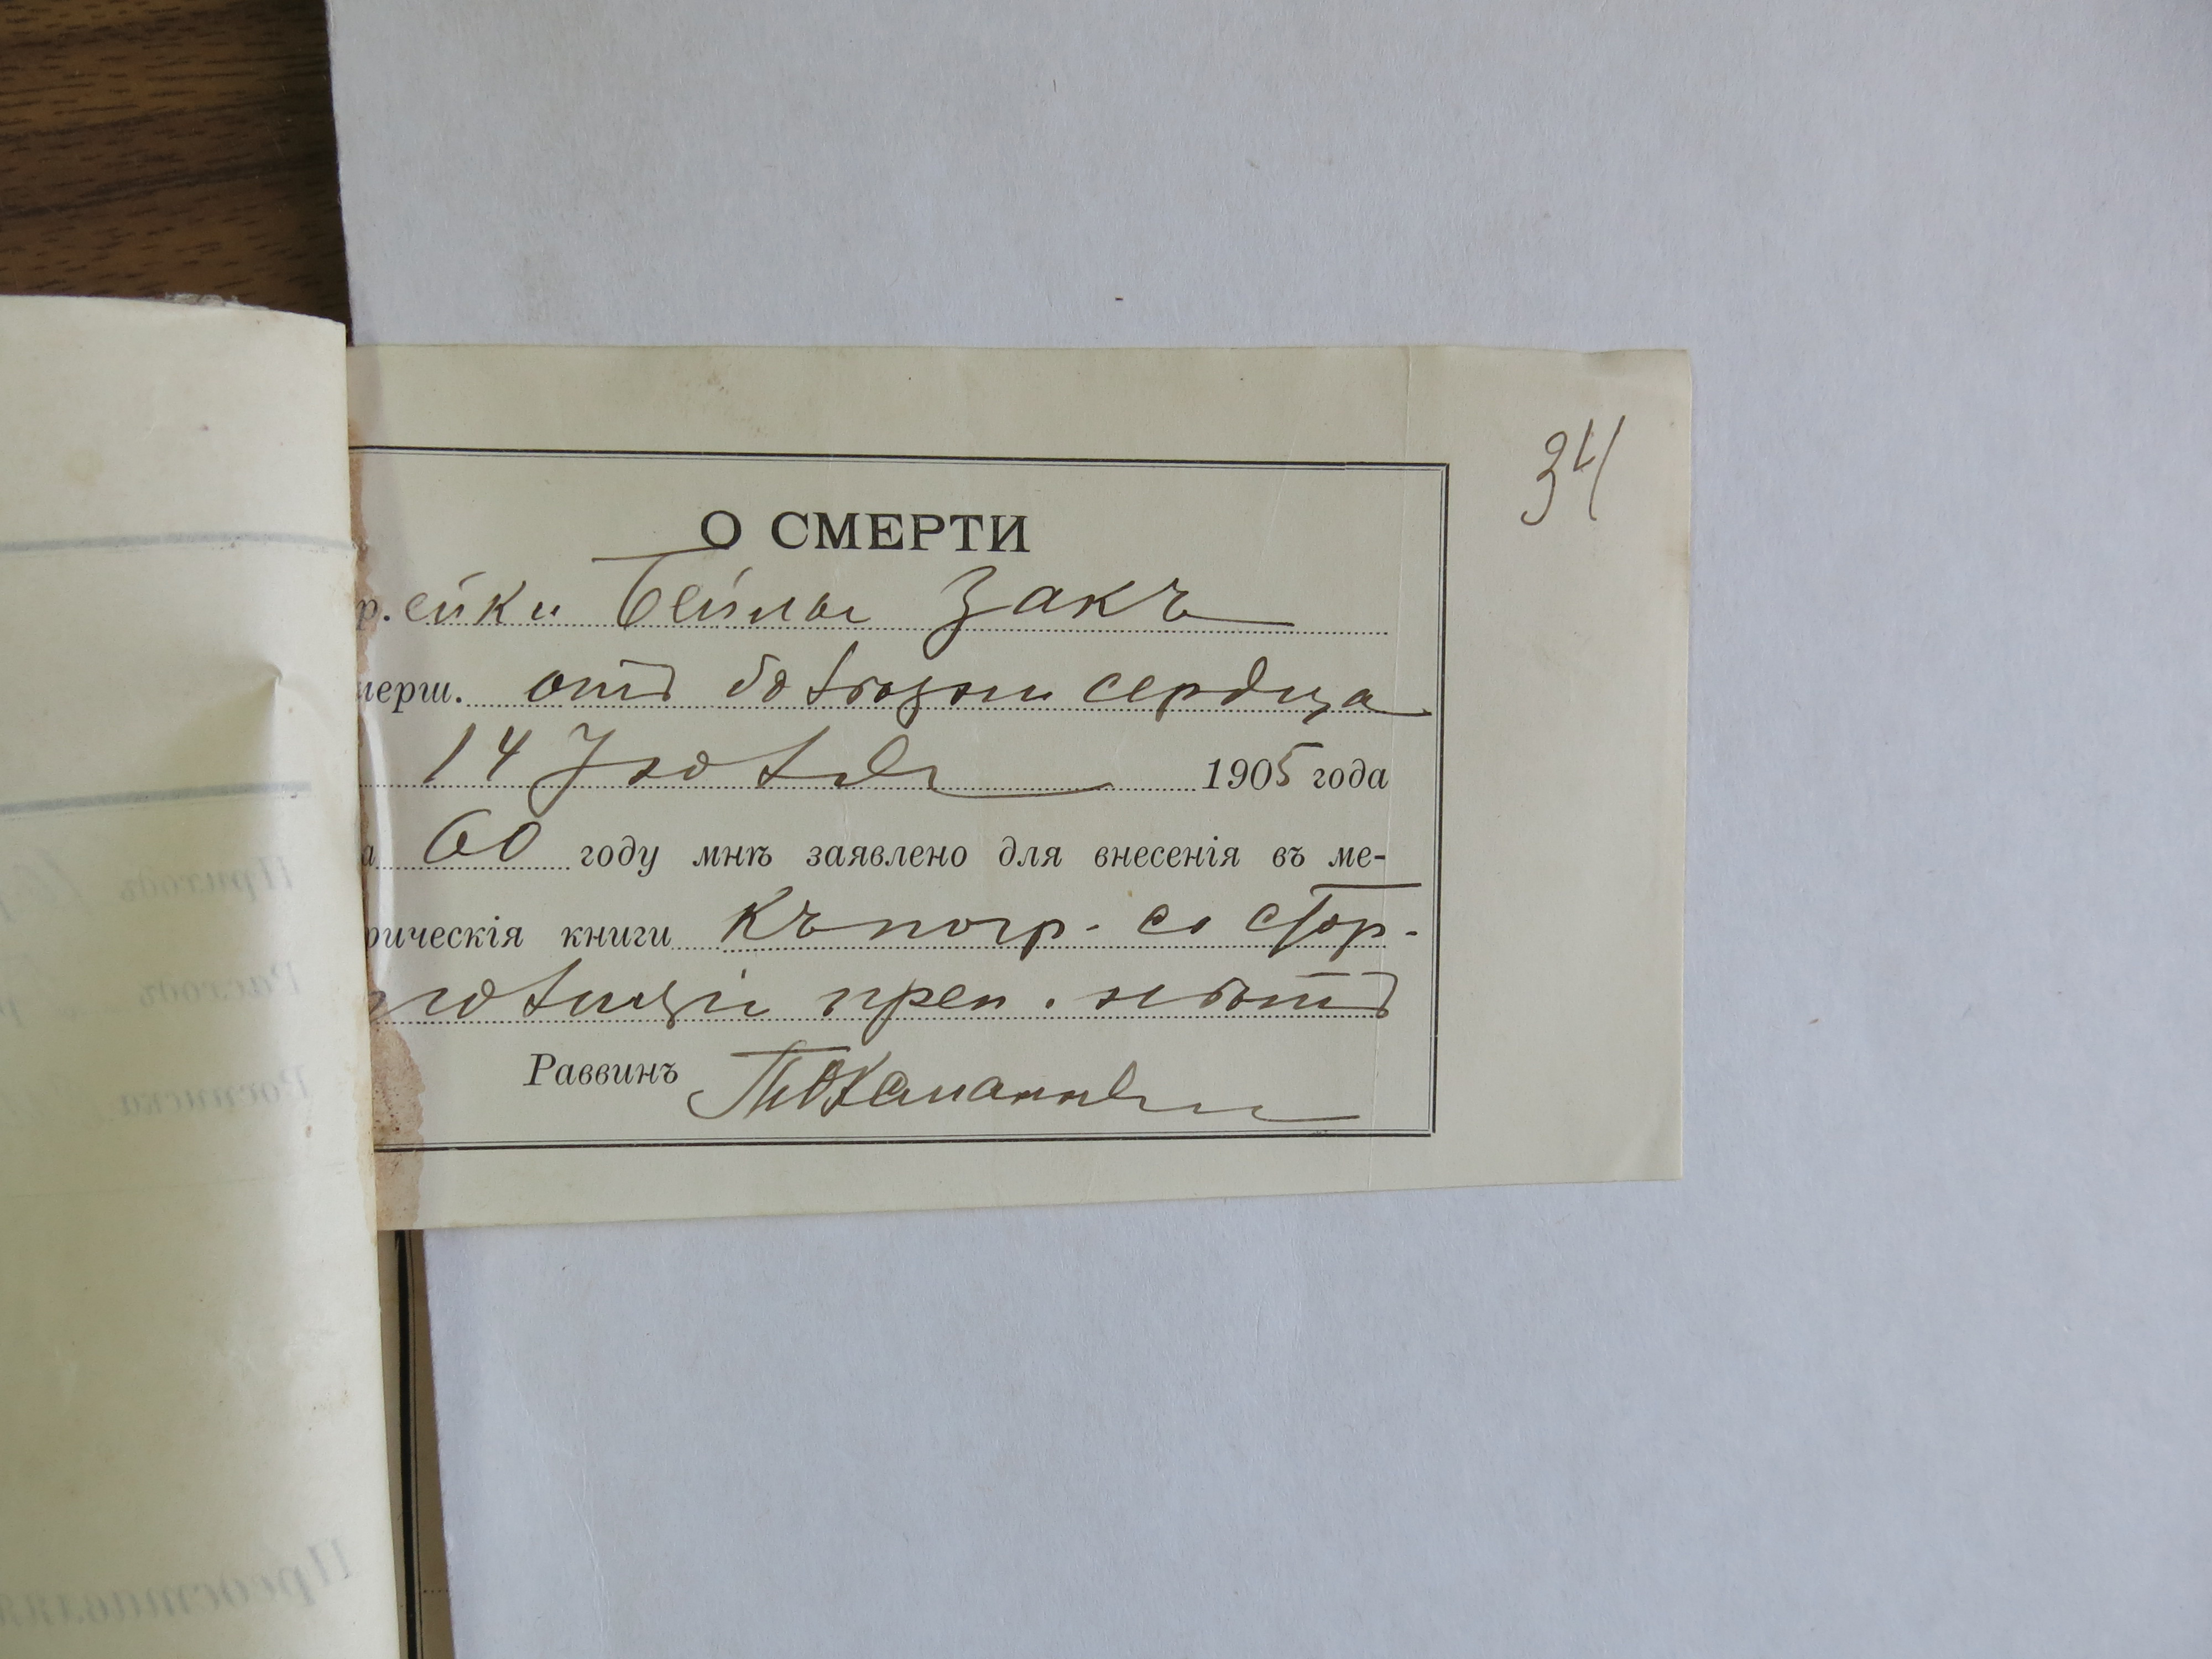 34
О СМЕРТИ
р. ейки Бейлы Закъ
мерш. отъ болѣзни сердца
14 Іюля 1905 года
а 60 году мнѣ заявлено для внесенія въ ме-
рическія книги Къ погр. со стор.
полиціи преп. нѣтъ
Раввинъ
Приходъ
Расходъ
Росписка